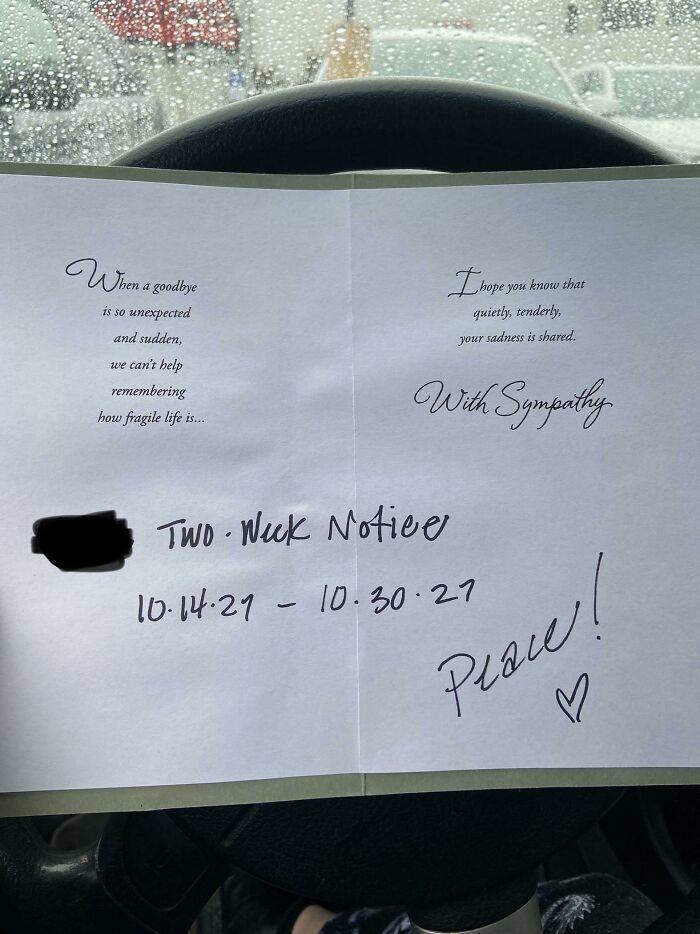 When a goodbye
is so unexpected
and sudden,
we can't help
remembering
how fragile life is...
I hope you know that
quietly, tenderly,
your sadness is shared.
With Sympathy
Two-Week Notice
10.14.21 - 10.30.21
Peace!